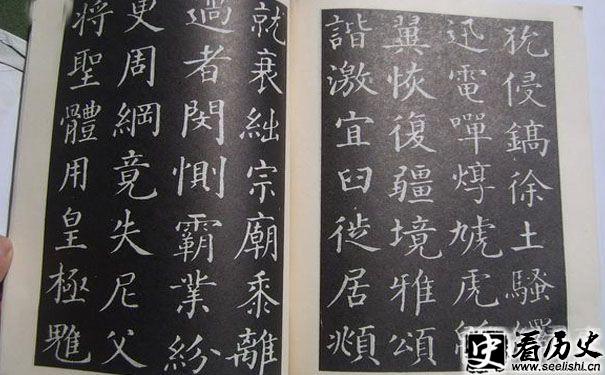 狁侵鎬徐土騷繹
迅電嘽焞虓虎
翼恢復疆境雅頌
諧激宜臼徙居頫
就衰絀宗廟黍離
過者閔惻霸業紛
更周綱竟失尼父
將聖體用皇極
看历史
www.seelishi.cn